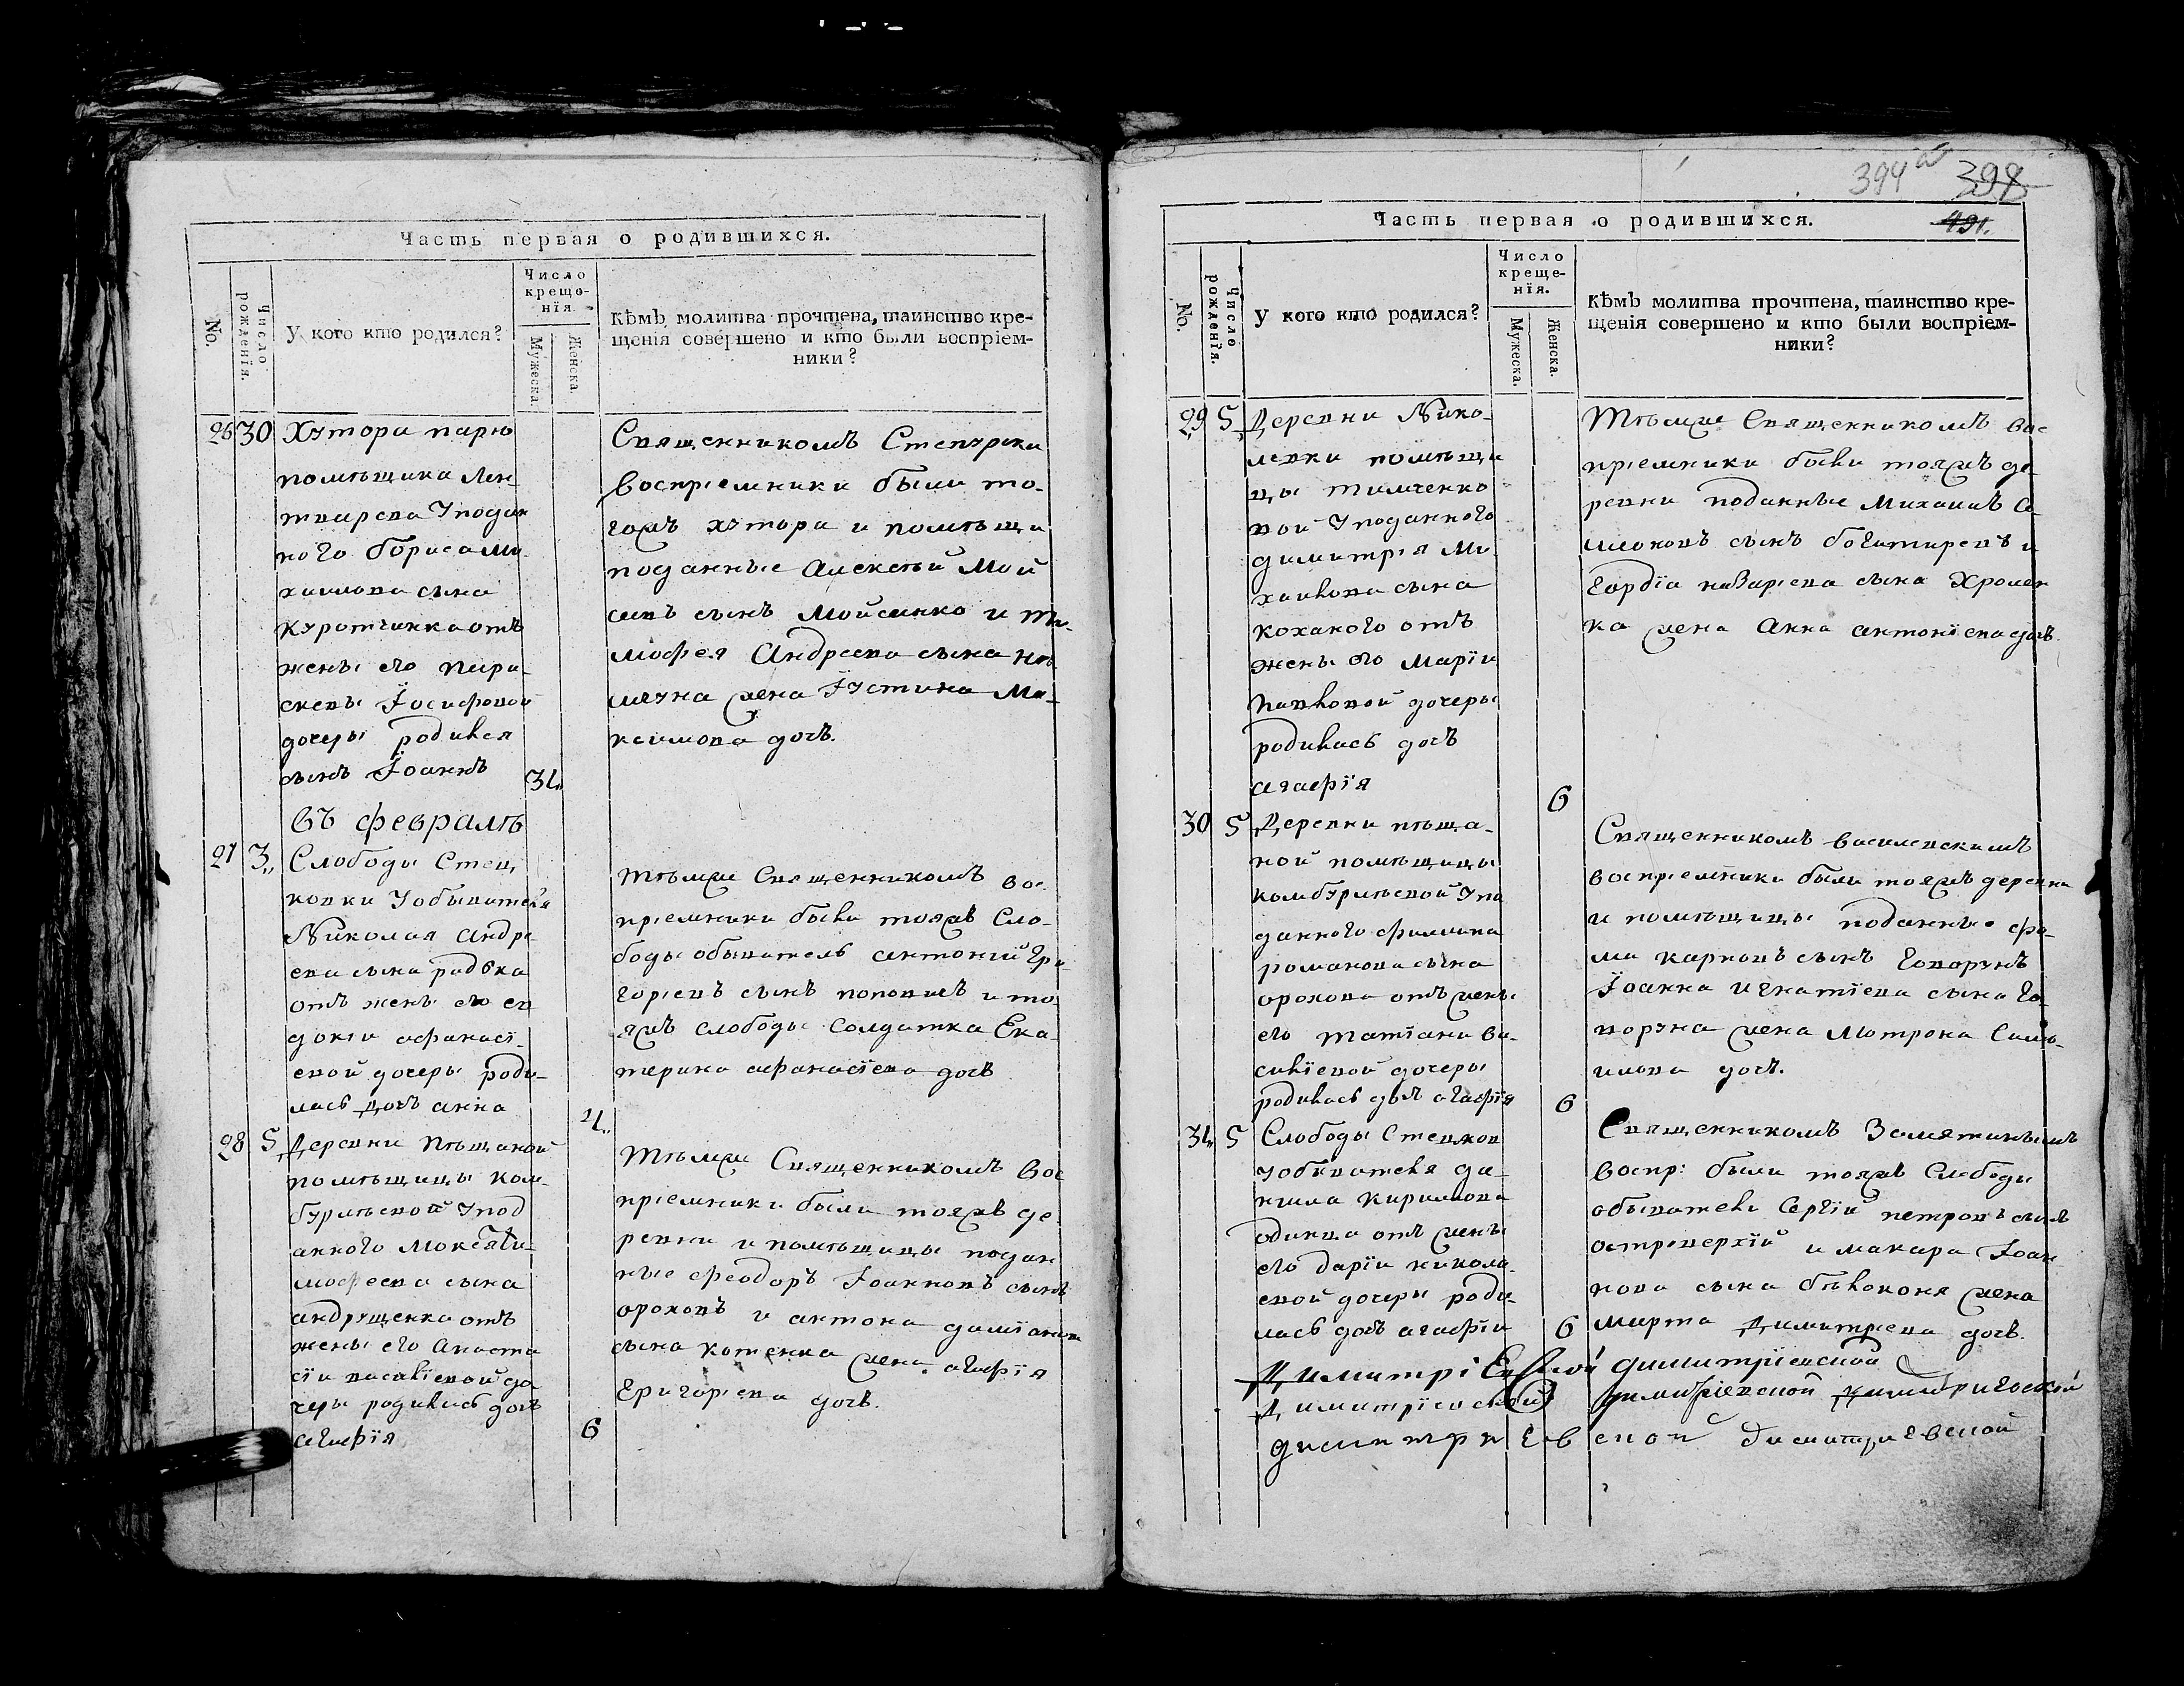 Часть первая о родившихся.
No.
Число рожденїя.
У кого кто родился?
Число крещенїя.
Мужеска.
Женска.
Кѣмъ молитва прочтена, таинство кре-
щенїя совершено и кто были воспрїем-
ники?
26 30 Хутора
помѣщика
ного Бориса Ми
хаилова сына
отъ
жены его Пара-
скевы Іосифовой
дочеры родился
сынъ Іоаннъ 31
Священникомъ
воспріемники были то-
гожъ хутора и помѣщи
поданные Алексѣй Мой
сеевъ сынъ Мойсенко и Ти-
мофея Андреева сына
жена Іустина Ма-
ксимова дочь.
въ февралѣ
27 3 Слободы Стец
ковки у обывателя
Николая Андре
ева сына
отъ жены его Ев
докіи Афанасі-
евой дочеры роди-
лась дочь Анна 4
Тѣмже Священникомъ вос
пріемники были тояжъ Сло-
боды обыватель Антоній Гри
горіевъ сынъ Поповичъ и то
яжъ слободы солдатка Ека-
терина Афанасіева дочь
28 5 Деревни Пѣщаной
помѣщицы Ком-
бурлѣевой у под
анного
мофеева сына
Андрущенка отъ
жены его Анаста
сіи Василіевой до
черы родилась дочь
Агафїя 6
Тѣмже Священникомъ вос
пріемники были тояжъ де
ревни и помѣщицы подан
ные Феодоръ Іоанновъ сынъ
Ороховъ и Антона Даміанова
сына Котенка жена Агафїя
Григоріева дочь.
394а 398
Часть первая о родившихся. 491.
No.
Число рожденїя.
У кого кто родился?
Число крещенїя.
Мужеска.
Женска.
Кѣмъ молитва прочтена, таинство кре-
щенїя совершено и кто были воспрїем-
ники?
29 5 Деревни Нико-
левки помѣщи
цы Тимченко
вой у поданного
Димитрія Ми
хайлова сына
Коханого отъ
жены его Марїи
Павловой дочеры
родилась дочь
Агафїя 6
Тѣмже Священникомъ вос
пріемники были тояжъ де
ревни поданные Михаилъ Са
моновъ сынъ Богатиревъ и
Гордїа Назаріева сына Хромен
ка жена Анна Антонїева дочь.
30 5 Деревни Пѣща-
ной помѣщицы
Комбурлѣевой у по
данного Филиппа
Романова сына
Орохова отъ жены
его Татїаны Ва-
силїевой дочеры
родилась дочь Агафїя 6
Священникомъ Василевскимъ
воспріемники были тояжъ деревни
и помѣщицы поданные Фо-
ма Карповъ сынъ Говорунъ
Іоанна Игнатїева сына Го-
воруна жена Мотрона Само-
илова дочь.
31 5 Слободы Стецков
у обывателя Да-
ніила Кирилова
Одинца отъ жены
его Дарїи Никола-
евой дочери роди-
лась дочь Агафїи 6
Священникомъ Замятинымъ
воспр: были тояжъ Слободы
обыватели Сергій Петровъ сынъ
Островерхїй и Макара Іоан
нова сына Бѣлоконя жена
Марта Димитріева дочь.
Димитріевской димитріевской
Димитріевской димитріевской димитриевской
димитриевской димитриевской